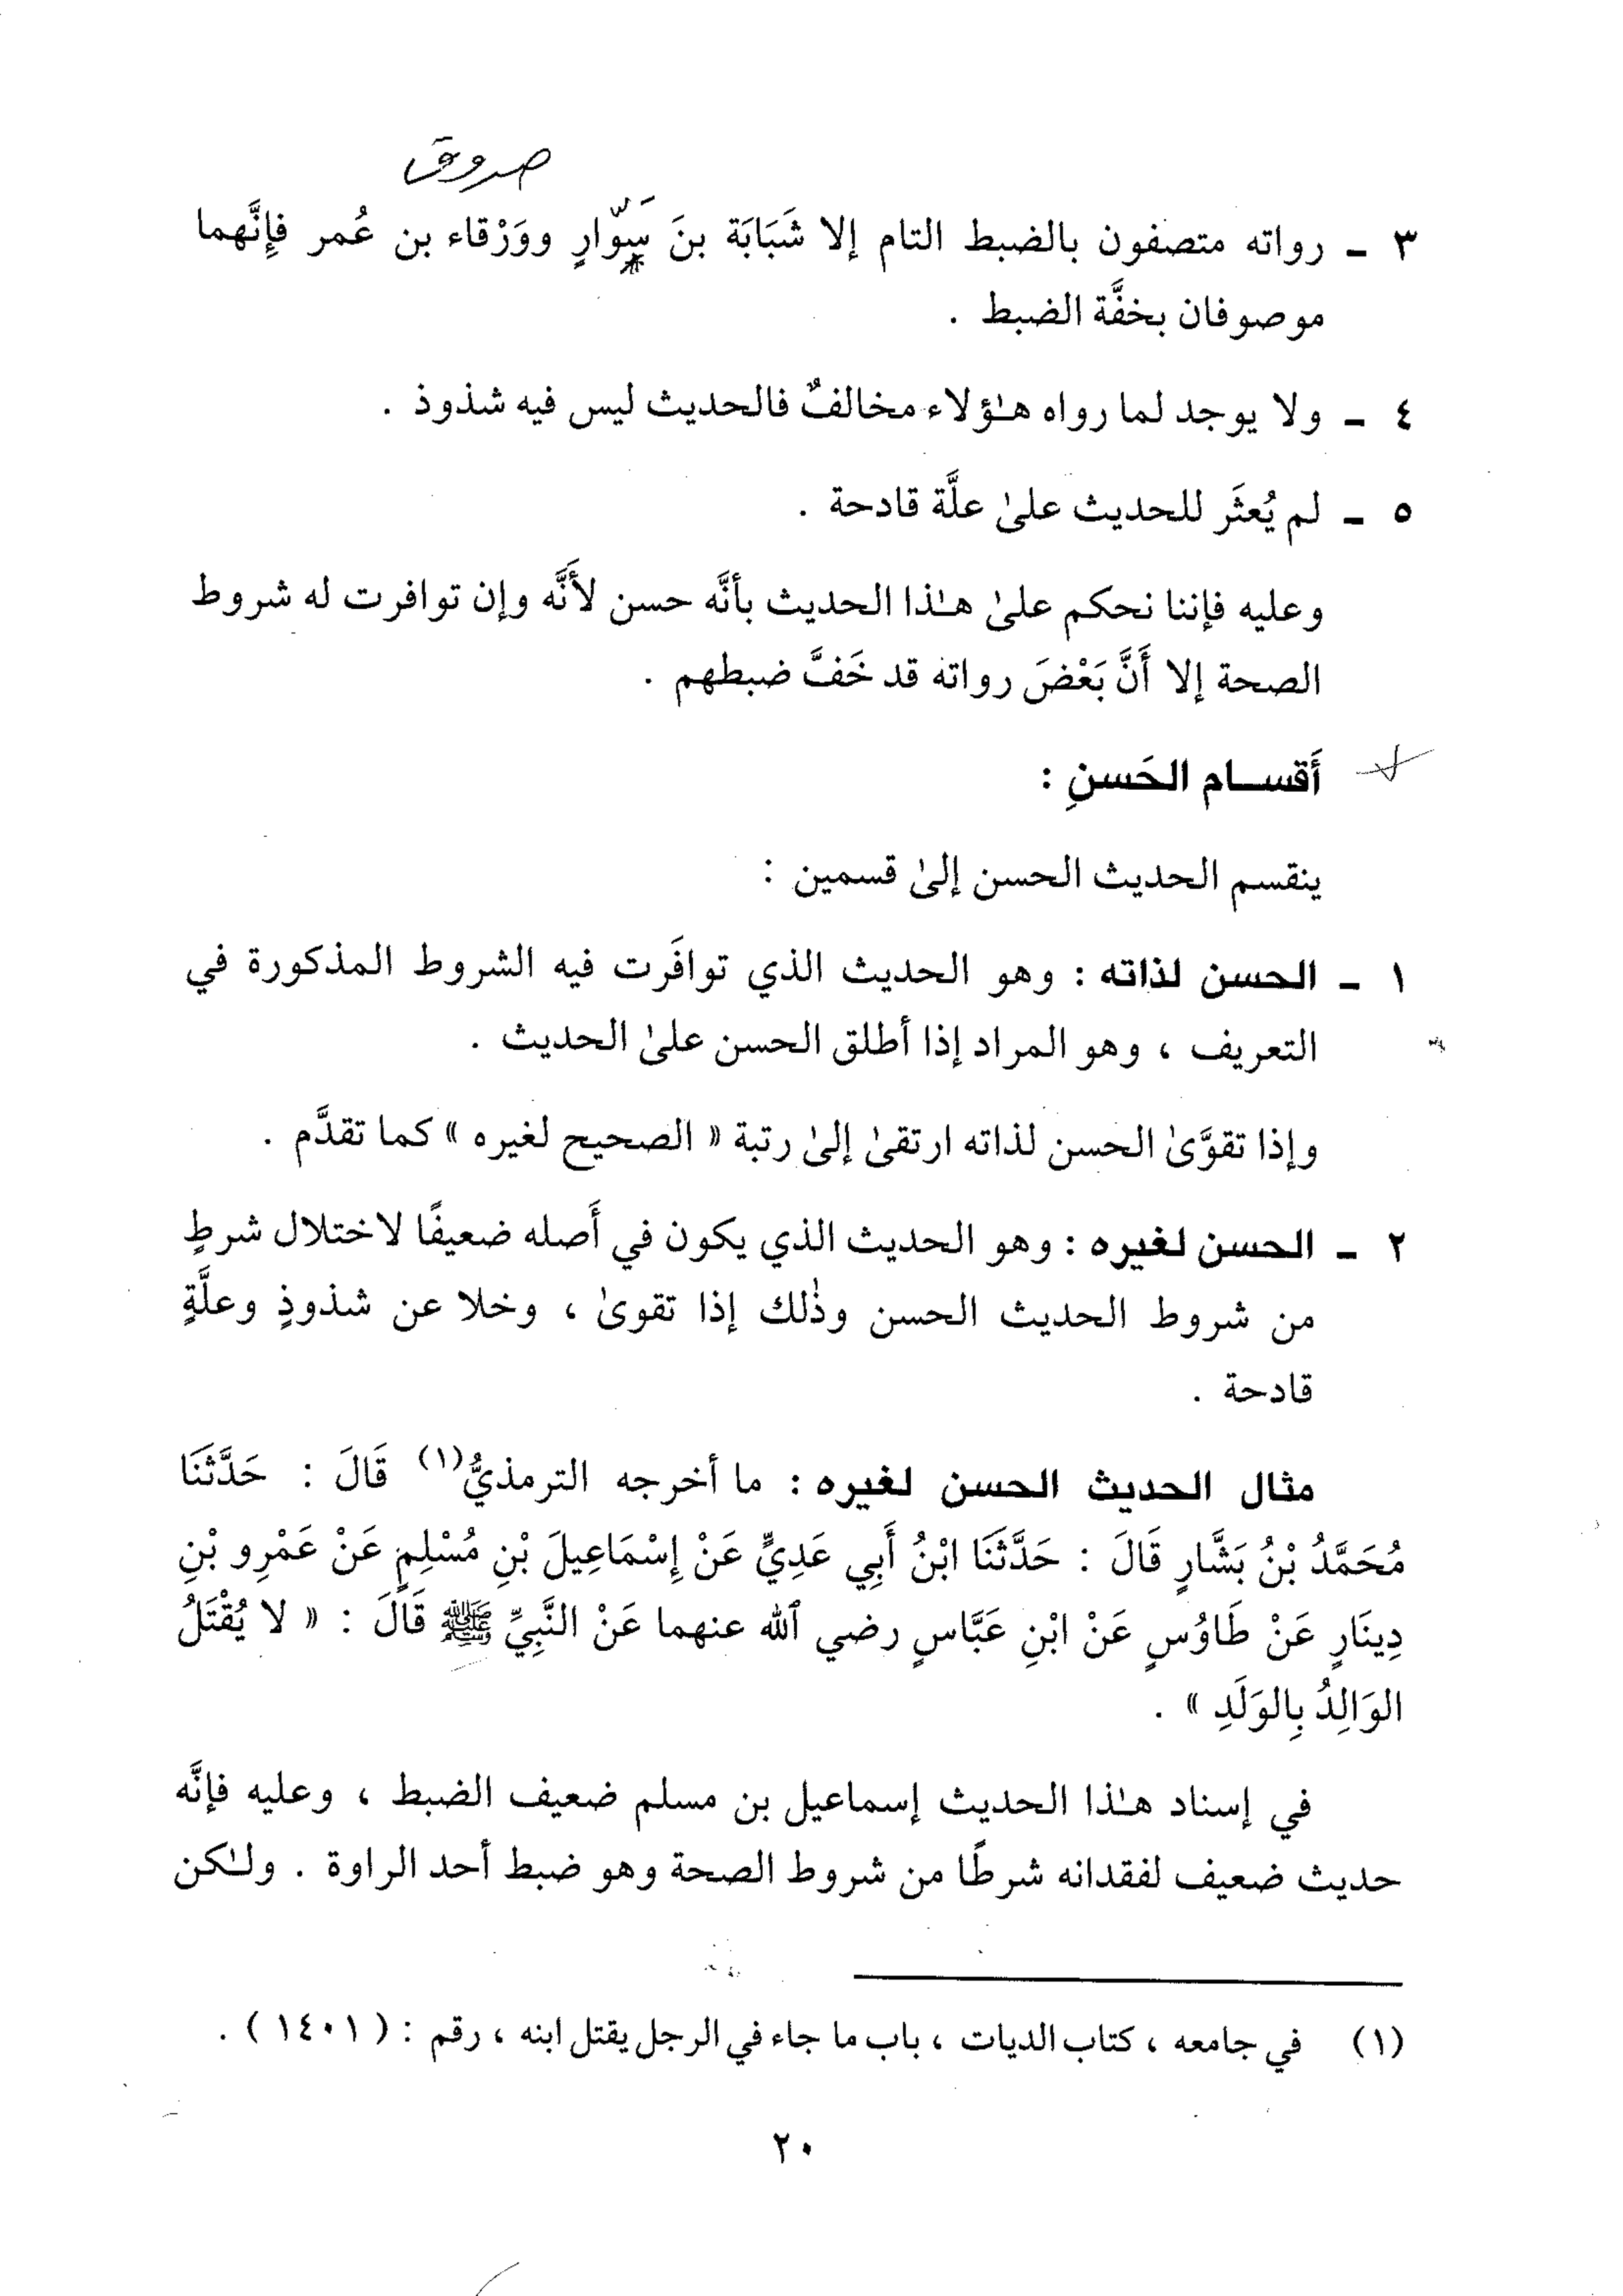 صدوق
٣ - رواته متصفون بالضبط التام إلا شَبَابَة بنَ سَوّارٍ ووَرْقاء بن عُمر فإِنَّهما
موصوفان بخفَّة الضبط .
٤ - ولا يوجد لما رواه هـٰؤلاء مخالفٌ فالحديث ليس فيه شذوذ .
٥ - لم يُعثَر للحديث علىٰ علَّة قادحة .
وعليه فإننا نحكم علىٰ هـٰذا الحديث بأنَّه حسن لأَنَّه وإن توافرت له شروط
الصحة إلا أَنَّ بَعْضَ رواته قد خَفَّ ضبطهم .
أَقسـام الحَسنِ :
ينقسم الحديث الحسن إلىٰ قسمين :
١ - الحسن لذاته : وهو الحديث الذي توافَرت فيه الشروط المذكورة في
التعريف ، وهو المراد إذا أطلق الحسن علىٰ الحديث .
وإذا تقوَّىٰ الحسن لذاته ارتقىٰ إلىٰ رتبة « الصحيح لغيره » كما تقدَّم .
٢ - الحسن لغيره : وهو الحديث الذي يكون في أَصله ضعيفًا لاختلال شرطٍ
من شروط الحديث الحسن وذٰلك إذا تقوىٰ ، وخلا عن شذوذٍ وعلَّةٍ
قادحة .
مثال الحديث الحسن لغيره : ما أخرجه الترمذيُّ(١) قَالَ : حَدَّثَنَا
مُحَمَّدُ بْنُ بَشَّارٍ قَالَ : حَدَّثَنَا ابْنُ أَبِي عَدِيٍّ عَنْ إِسْمَاعِيلَ بْنِ مُسْلِمٍ عَنْ عَمْرِو بْنِ
دِينَارٍ عَنْ طَاوُسٍ عَنْ ابْنِ عَبَّاسٍ رضي ٱلله عنهما عَنْ النَّبِيِّ ﷺ قَالَ : « لا يُقْتَلُ
الوَالِدُ بِالوَلَدِ » .
في إسناد هـٰذا الحديث إسماعيل بن مسلم ضعيف الضبط ، وعليه فإنَّه
حديث ضعيف لفقدانه شرطًا من شروط الصحة وهو ضبط أحد الراوة . ولـٰكن
(١) في جامعه ، كتاب الديات ، باب ما جاء في الرجل يقتل ابنه ، رقم : ( ١٤٠١ ) .
٢٠